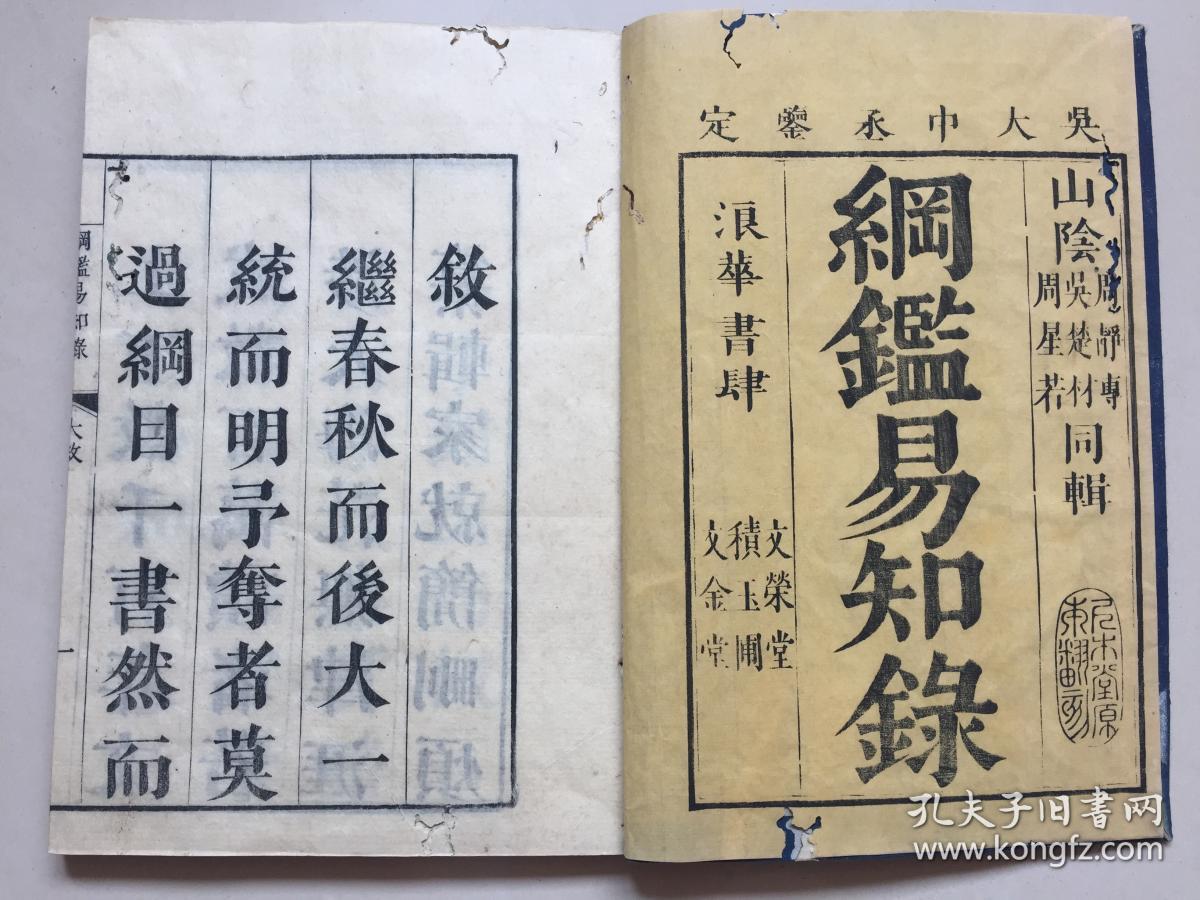 吳大中丞鑒定
山陰
周靜專
吳楚材
周星若
同輯
綱鑑易知錄
浪華書肆
文榮堂
積玉圃
文金堂
敘
繼春秋而後大一
統而明予奪者莫
過綱目一書然而
綱鑑易知錄
大敘
一
孔夫子旧书网
www.kongfz.com